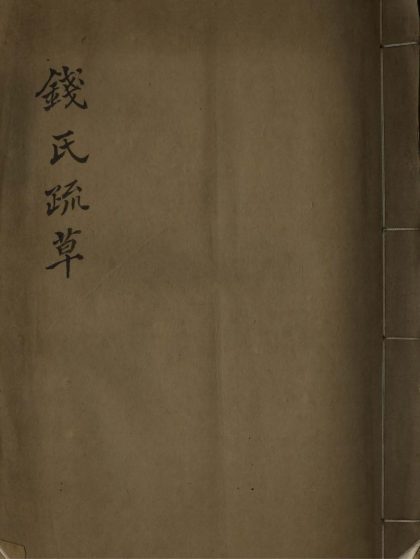 錢氏疏草